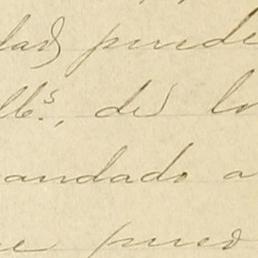 dad puede
lls., de lo
andado a
e pues